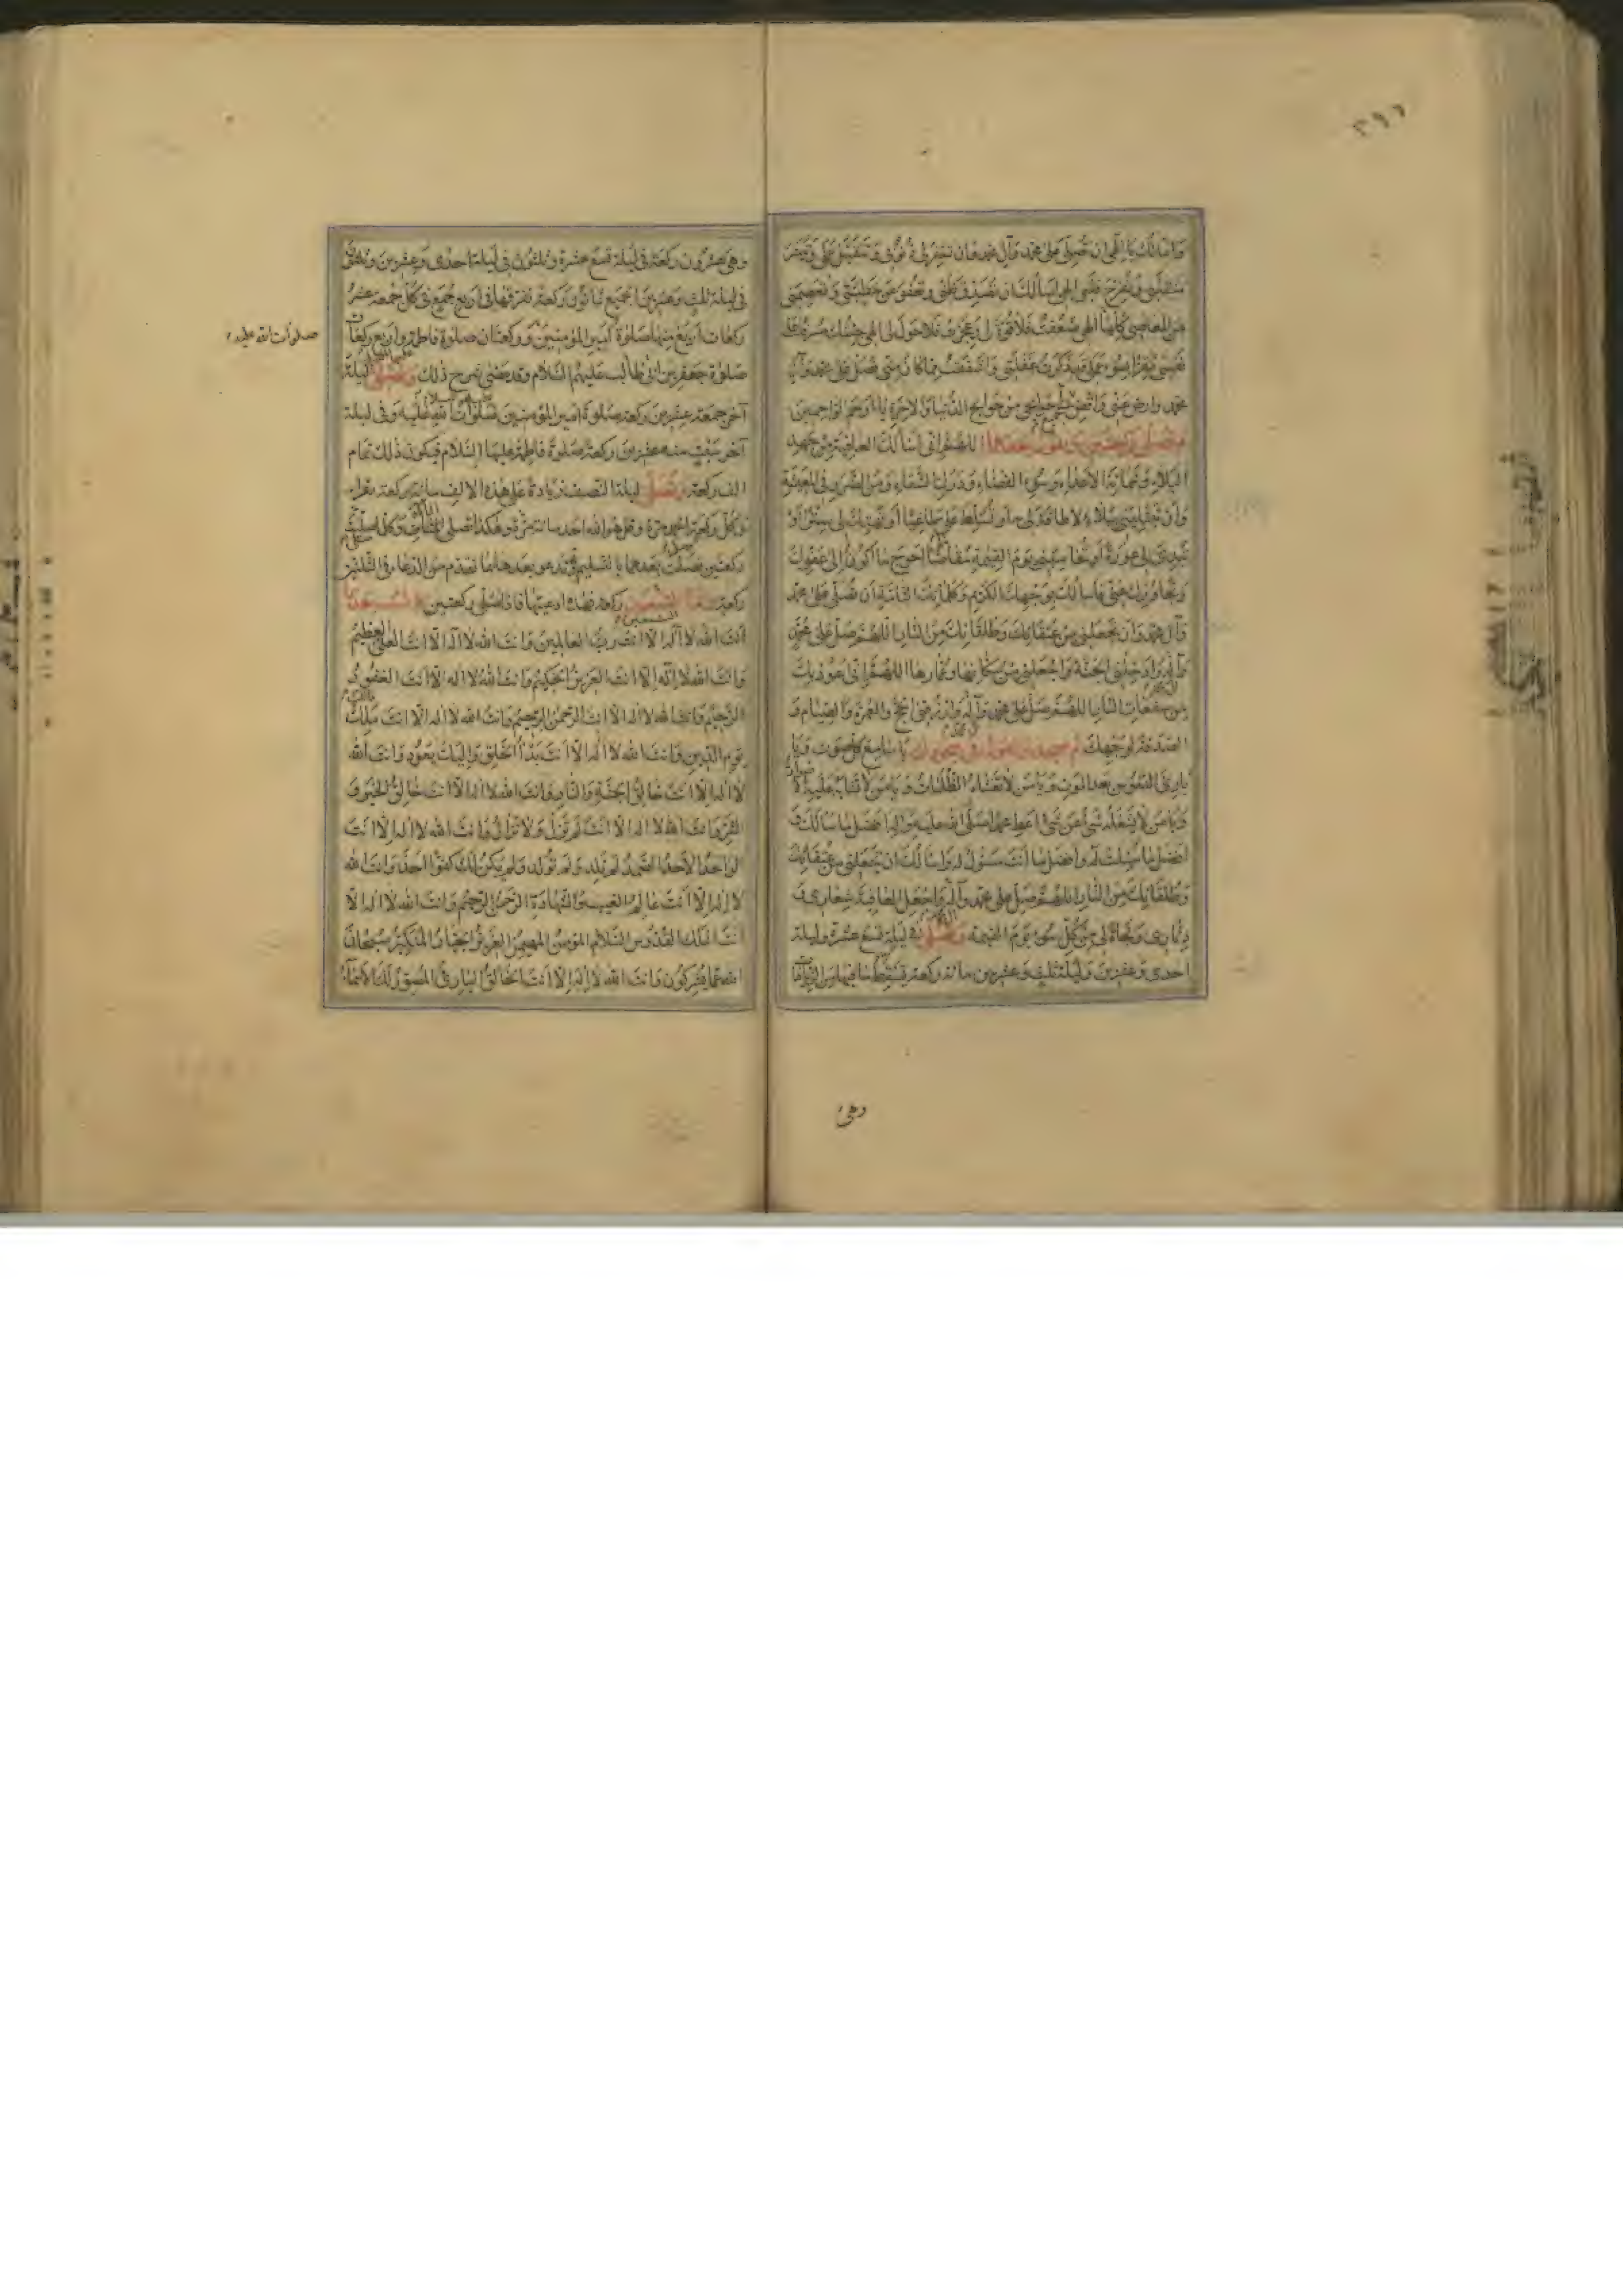 ٣٩٦
وَاسْالُكَ يا اِلٰهي ان تُصَلّيَ عَلىٰ محمّد وآل محمّد وان تغفِرَ لي ذُنُوبي وتتقبّل عملي وتُيسّرَ
منقلبي وتُفرّج قلبي الهي اسألك ان تصدّق ظنّي وتعفو عن خطيئتي وتعصمني
من المعاصي كُلِّها الهي ضعُفتُ فلا قوّة لي وعجزتُ فلا حول لي الهي جئتُك مسرفًا على
نفسي مُقرًّا بسُوء عملي قد ذكرتُ غفلتي واشفقتُ ممّا كان منّي فصلّ على محمّد وآل
محمّد وارض عنّي واقض لي جميع حوائجي من حوائج الدّنيا والآخرة يا ارحم الراحمين
ثم تصلّي ركعتين وتقول بعدهما اللهمّ انّي اسألك العافية من جهد
البلاء وشماتة الاعداء وسُوء القضاء ودرك الشقاء ومن الضّرر في المعيشة
وأن تبتليني ببلاء لا طاقة لي به او تُسلّط عليّ طاغيًا أو تهتك لي سترًا أو
تُبدي لي عورة أو تحاسبني يوم القيمة مُقاصًّا احوج ما اكون الى عفوك
وتجاوزك عنّي فاسألك بوجهك الكريم وكلماتك التامّة أن تُصلّي على محمّد
وآل محمّد وأن تجعلني من عتقائك وطلقائك من النار اللهمّ صلّ على محمّد
وآله وادخلني الجنّة واجعلني من سكّانها وعمّارها اللهمّ انّي اعوذ بك
من سفعات النار اللهمّ صلّ على محمّد وآله وارزقني الحجّ والعمرة والصيام و
الصّدقة لوجهك ثم تسجد وتقول في سجودك يا سامع كلّ صوت ويا
بارئ النّفوس بعد الموت ويا من لا تغشاه الظّلمات ويا من لا تتشابه عليه الاصوات
ويا من لا يشغله شيء عن شيء اعط محمّدًا صلّى الله عليه وآله افضل ما سألك و
افضل ما سُئلت له وافضل ما أنت مسئول له واسألك ان تجعلني من عتقائك
وطلقائك من النار اللهمّ صلّ على محمّد وآله واجعل العافية شعاري و
دثاري ونجاة لي من كلّ سوء يوم القيمة وتصلّي في ليلة تسع عشرة وليلة
احدى وعشرين وليلة ثلث وعشرين مائة ركعة تسقط ما فيها من الزيادات
وهي
وهي عشرون ركعة في ليلة تسع عشرة وثلثون في ليلة احدى وعشرين وثلثون
في ليلة ثلث وعشرين الجميع ثمانون ركعة تفرّقها في اربع جُمع في كلّ جمعة عشر
ركعات اربع منها صلوة امير المؤمنين وركعتان صلوة فاطمة واربع ركعات
صلوات الله عليه
صلوة جعفر بن ابي طالب عليهم السّلام وقد مضى شرح ذلك وتصلّي ليلة
آخر جمعة عشرين ركعة صلوة امير المؤمنين صلوات الله عليه وفي ليلة
آخر سبت منه عشرين ركعة صلوة فاطمة عليها السّلام فيكون ذلك تمام
الف ركعة وتصلّي ليلة النّصف زيادة على هذه الالف مائة ركعة تقرأ
في كلّ ركعة الحمد مرّة وقل هو الله احد مائة مرّة وهكذا تصلّي المئات وكلّما صلّيت
ركعتين فصلت بعدهما بالتسليم وتدعو بعدهما بما تقدّم من الدّعاء في الثلثين
ركعة ركعة فهذه ادعيتها فاذا صلّي ركعتين
أنت الله لا اله الّا انت ربّ العالمين وانت الله لا اله الّا انت العليّ العظيم
وانت الله لا اله الّا انت العزيز الحكيم وانت الله لا اله الّا أنت الغفور
الرّحيم وانت الله لا اله الّا انت الرّحمٰن الرّحيم وانت الله لا اله الّا انت ملك
يوم الدّين وانت الله لا اله الّا أنت بدأ الخلق واليك يعود وانت الله
لا اله الّا أنت خالق الجنّة والنّار وانت الله لا اله الّا أنت خالق الخير و
الشّر وانت الله لا اله الّا انت لم تزل ولا تزال وانت الله لا اله الّا انت
الواحد الاحد الصّمد لم يلد ولم يُولد ولم يكن لك كفوًا احد وانت الله
لا اله الّا أنت عالم الغيب والشّهادة الرّحمٰن الرّحيم وانت الله لا اله الّا
انت الملك القدّوس السّلام المؤمن المهيمن العزيز الجبّار المتكبّر سبحان
الله عمّا يشركون وانت الله لا اله الّا انت الخالق البارئ المصوّر لك الاسماء